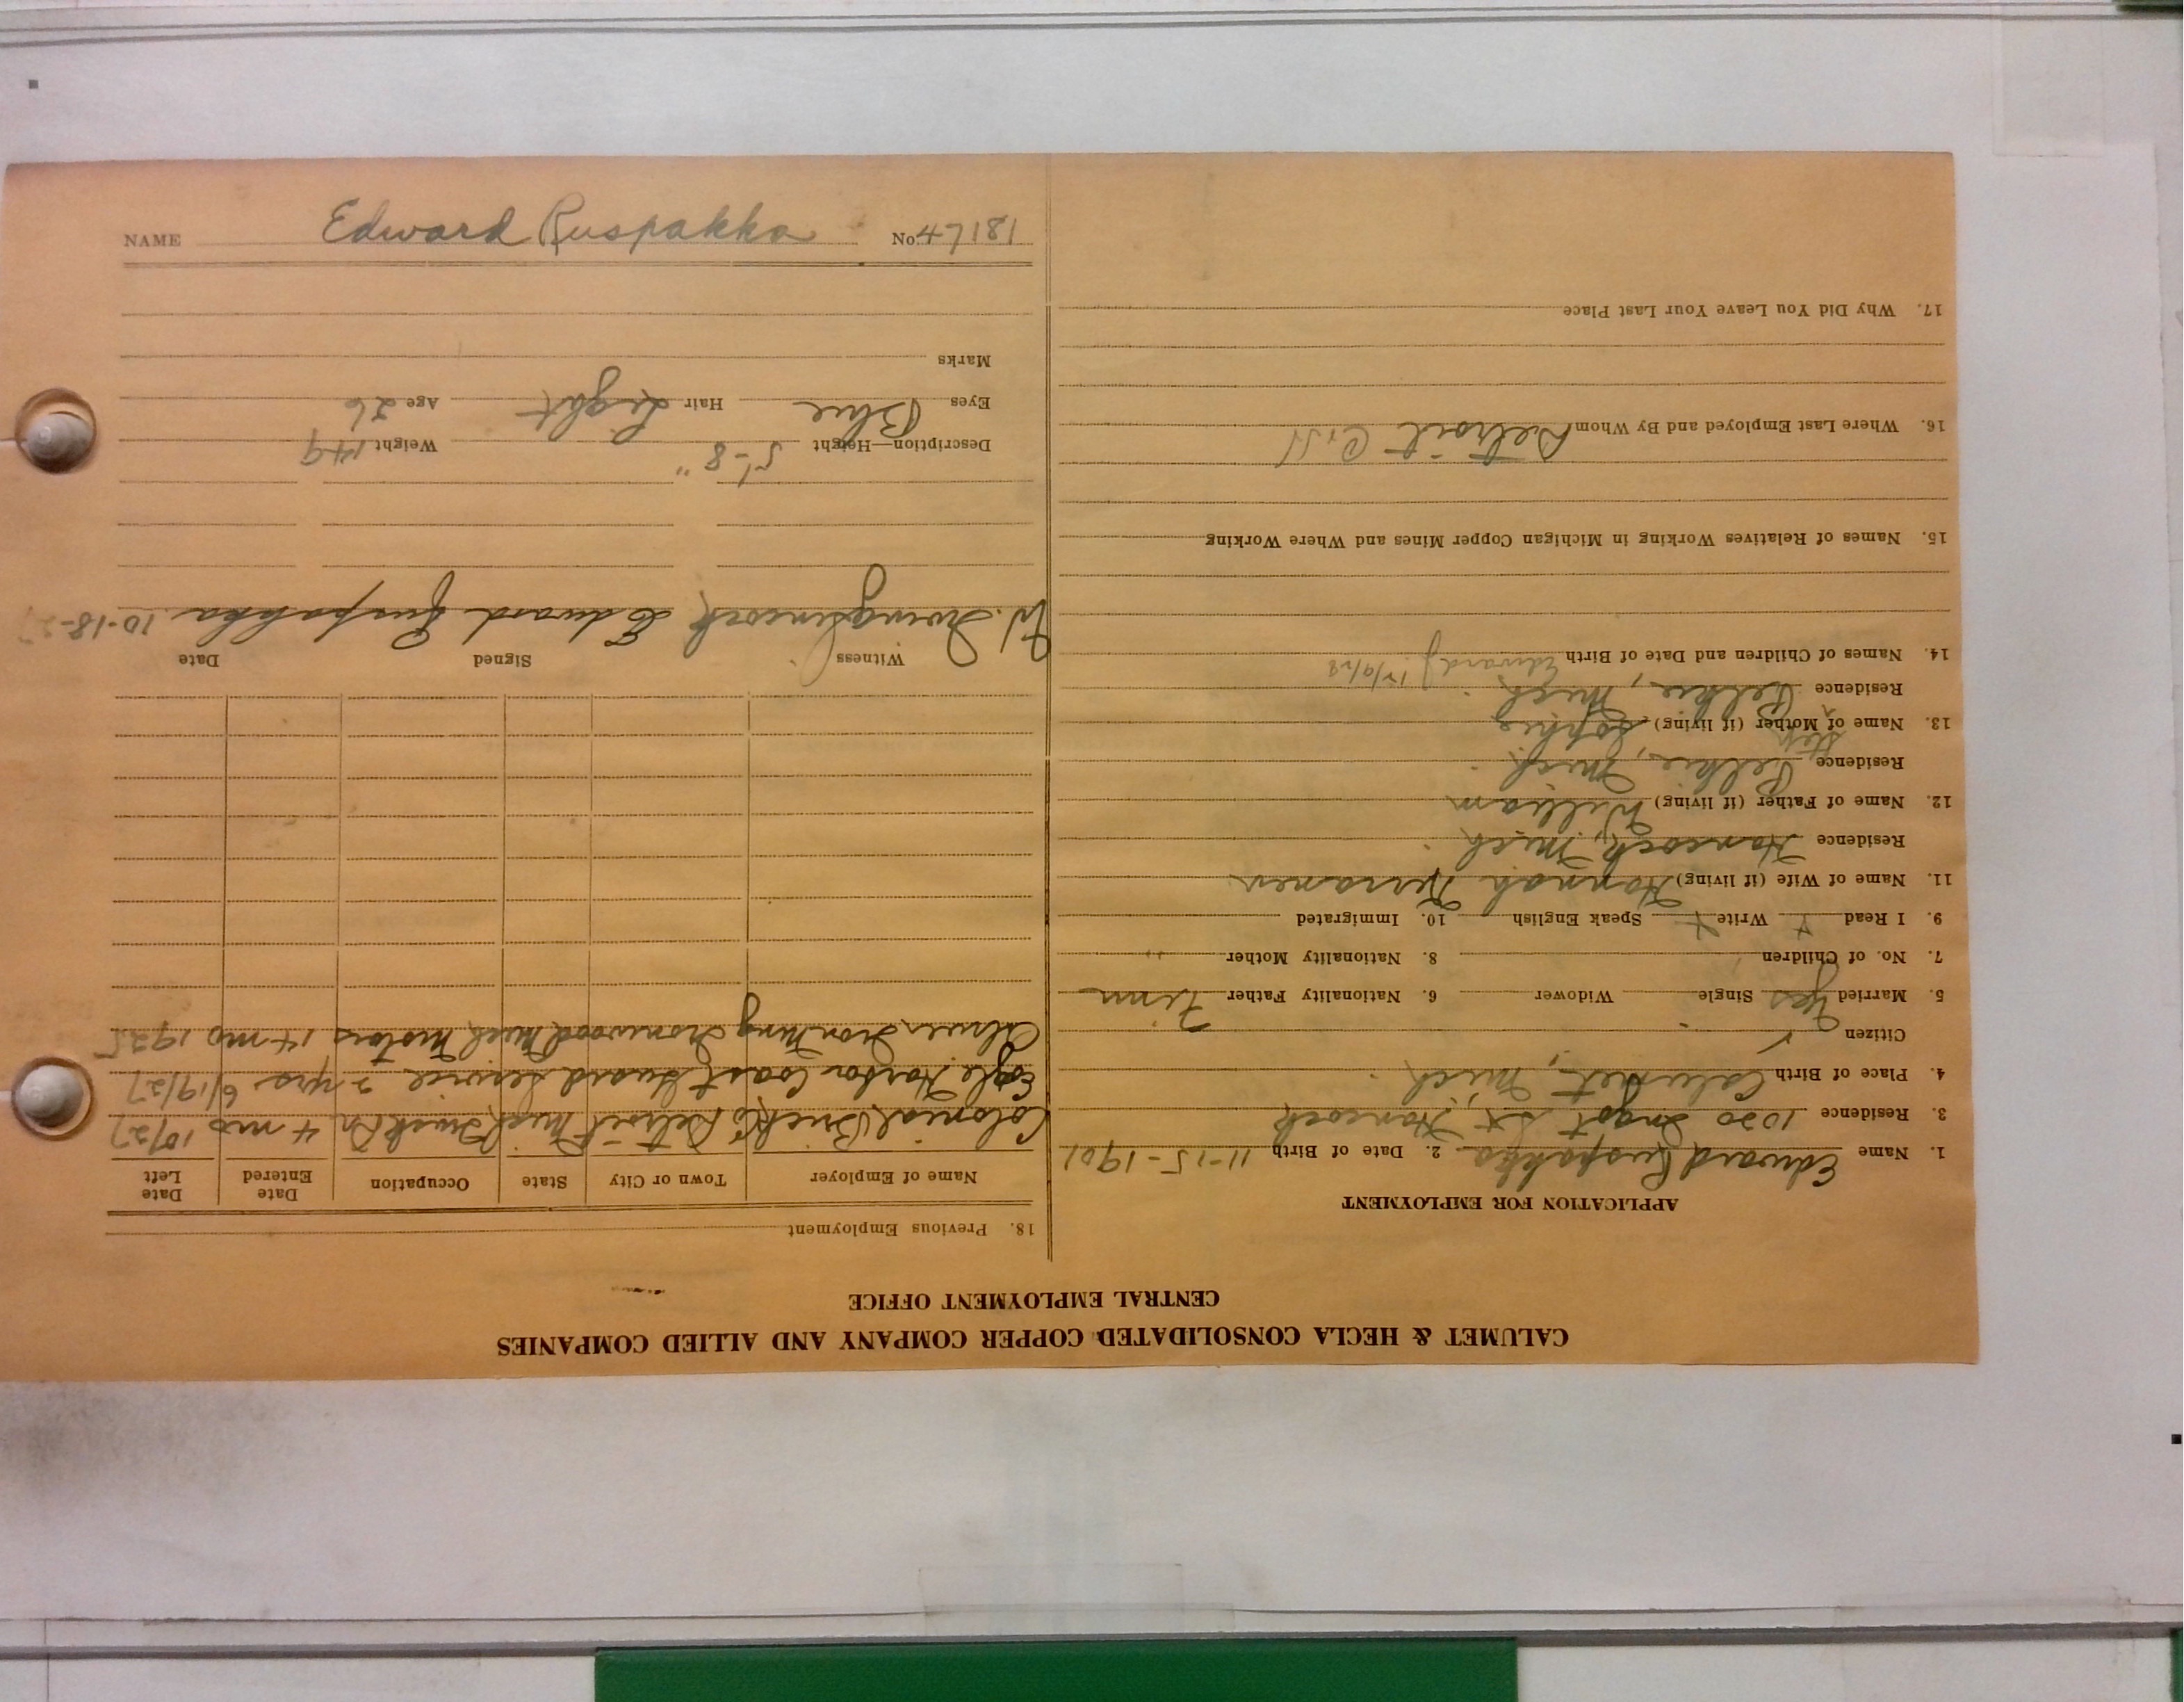 CALUMET & HECLA CONSOLIDATED COPPER COMPANY AND ALLIED COMPANIES
CENTRAL EMPLOYMENT OFFICE
APPLICATION FOR EMPLOYMENT
1. Name Edward Ruspakka 2. Date of Birth 11-15-1901
3. Residence 1020 Ingot St Hancock
4. Place of Birth Calumet, Mich.
Citizen
5. Married Yes Single Widower 6. Nationality Father Finn
7. No. of Children 8. Nationality Mother "
9. I Read x Write x Speak English 10. Immigrated
11. Name of Wife (if living) Hannah
Residence Hancock, Mich.
12. Name of Father (if living) William
Residence Pelkie, Mich.
13. Name of Step Mother (if living) Sophie
Residence Pelkie, Mich.
14. Names of Children and Date of Birth Edward J.
15. Names of Relatives Working in Michigan Copper Mines and Where Working
16. Where Last Employed and By Whom Detroit
17. Why Did You Leave Your Last Place
18. Previous Employment
Name of Employer Town or City State Occupation Date Entered Date Left
Colonial Brick Co Detroit Mich 4 mo 10/27
Eagle Harbor Coast Guard Service 2 yrs 6/19/27
Iron Mng Ironwood Mich 14 mo 1925
Witness Signed Date
Edward Ruspakka 10-18-27
Description—Height 5'-8" Weight 149
Eyes Blue Hair Light Age 26
Marks
NAME Edward Ruspakka No. 47181